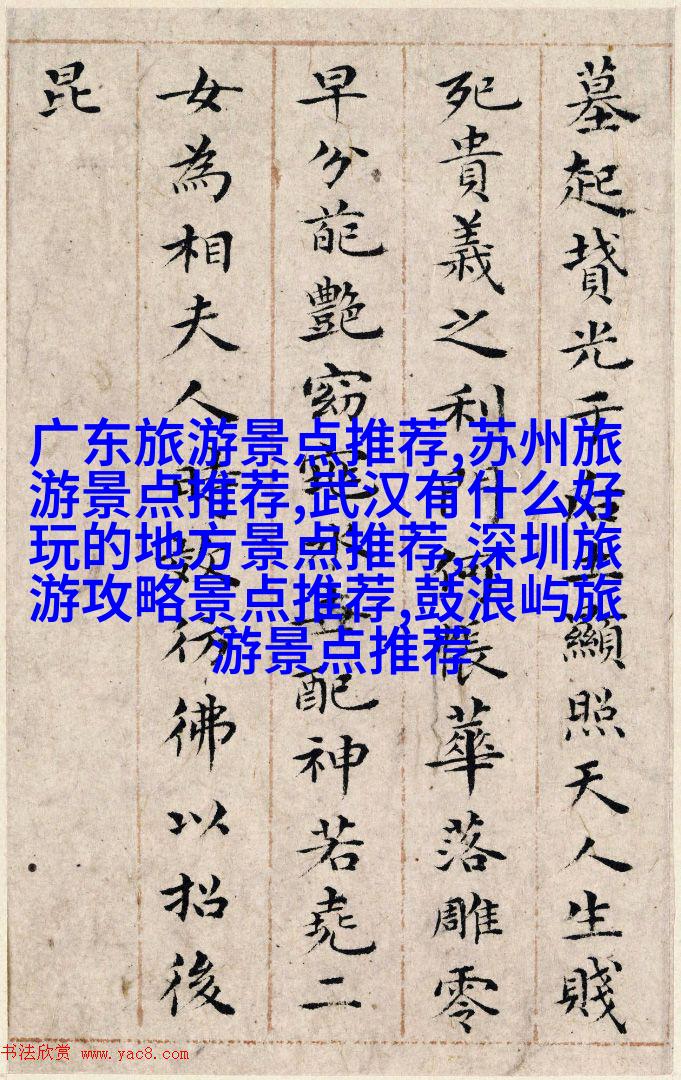 墓起墳光于后土顯照天人生賤
死貴義之利門何悵華落雕零
早分葩艷窈窕永世配神若堯二
女為相夫人時效仿彿以招後
昆
广东旅游景点推荐,苏州旅
游景点推荐,武汉有什么好
玩的地方景点推荐,深圳旅
游攻略景点推荐,鼓浪屿旅
游景点推荐
书法欣赏 www.yac8.com